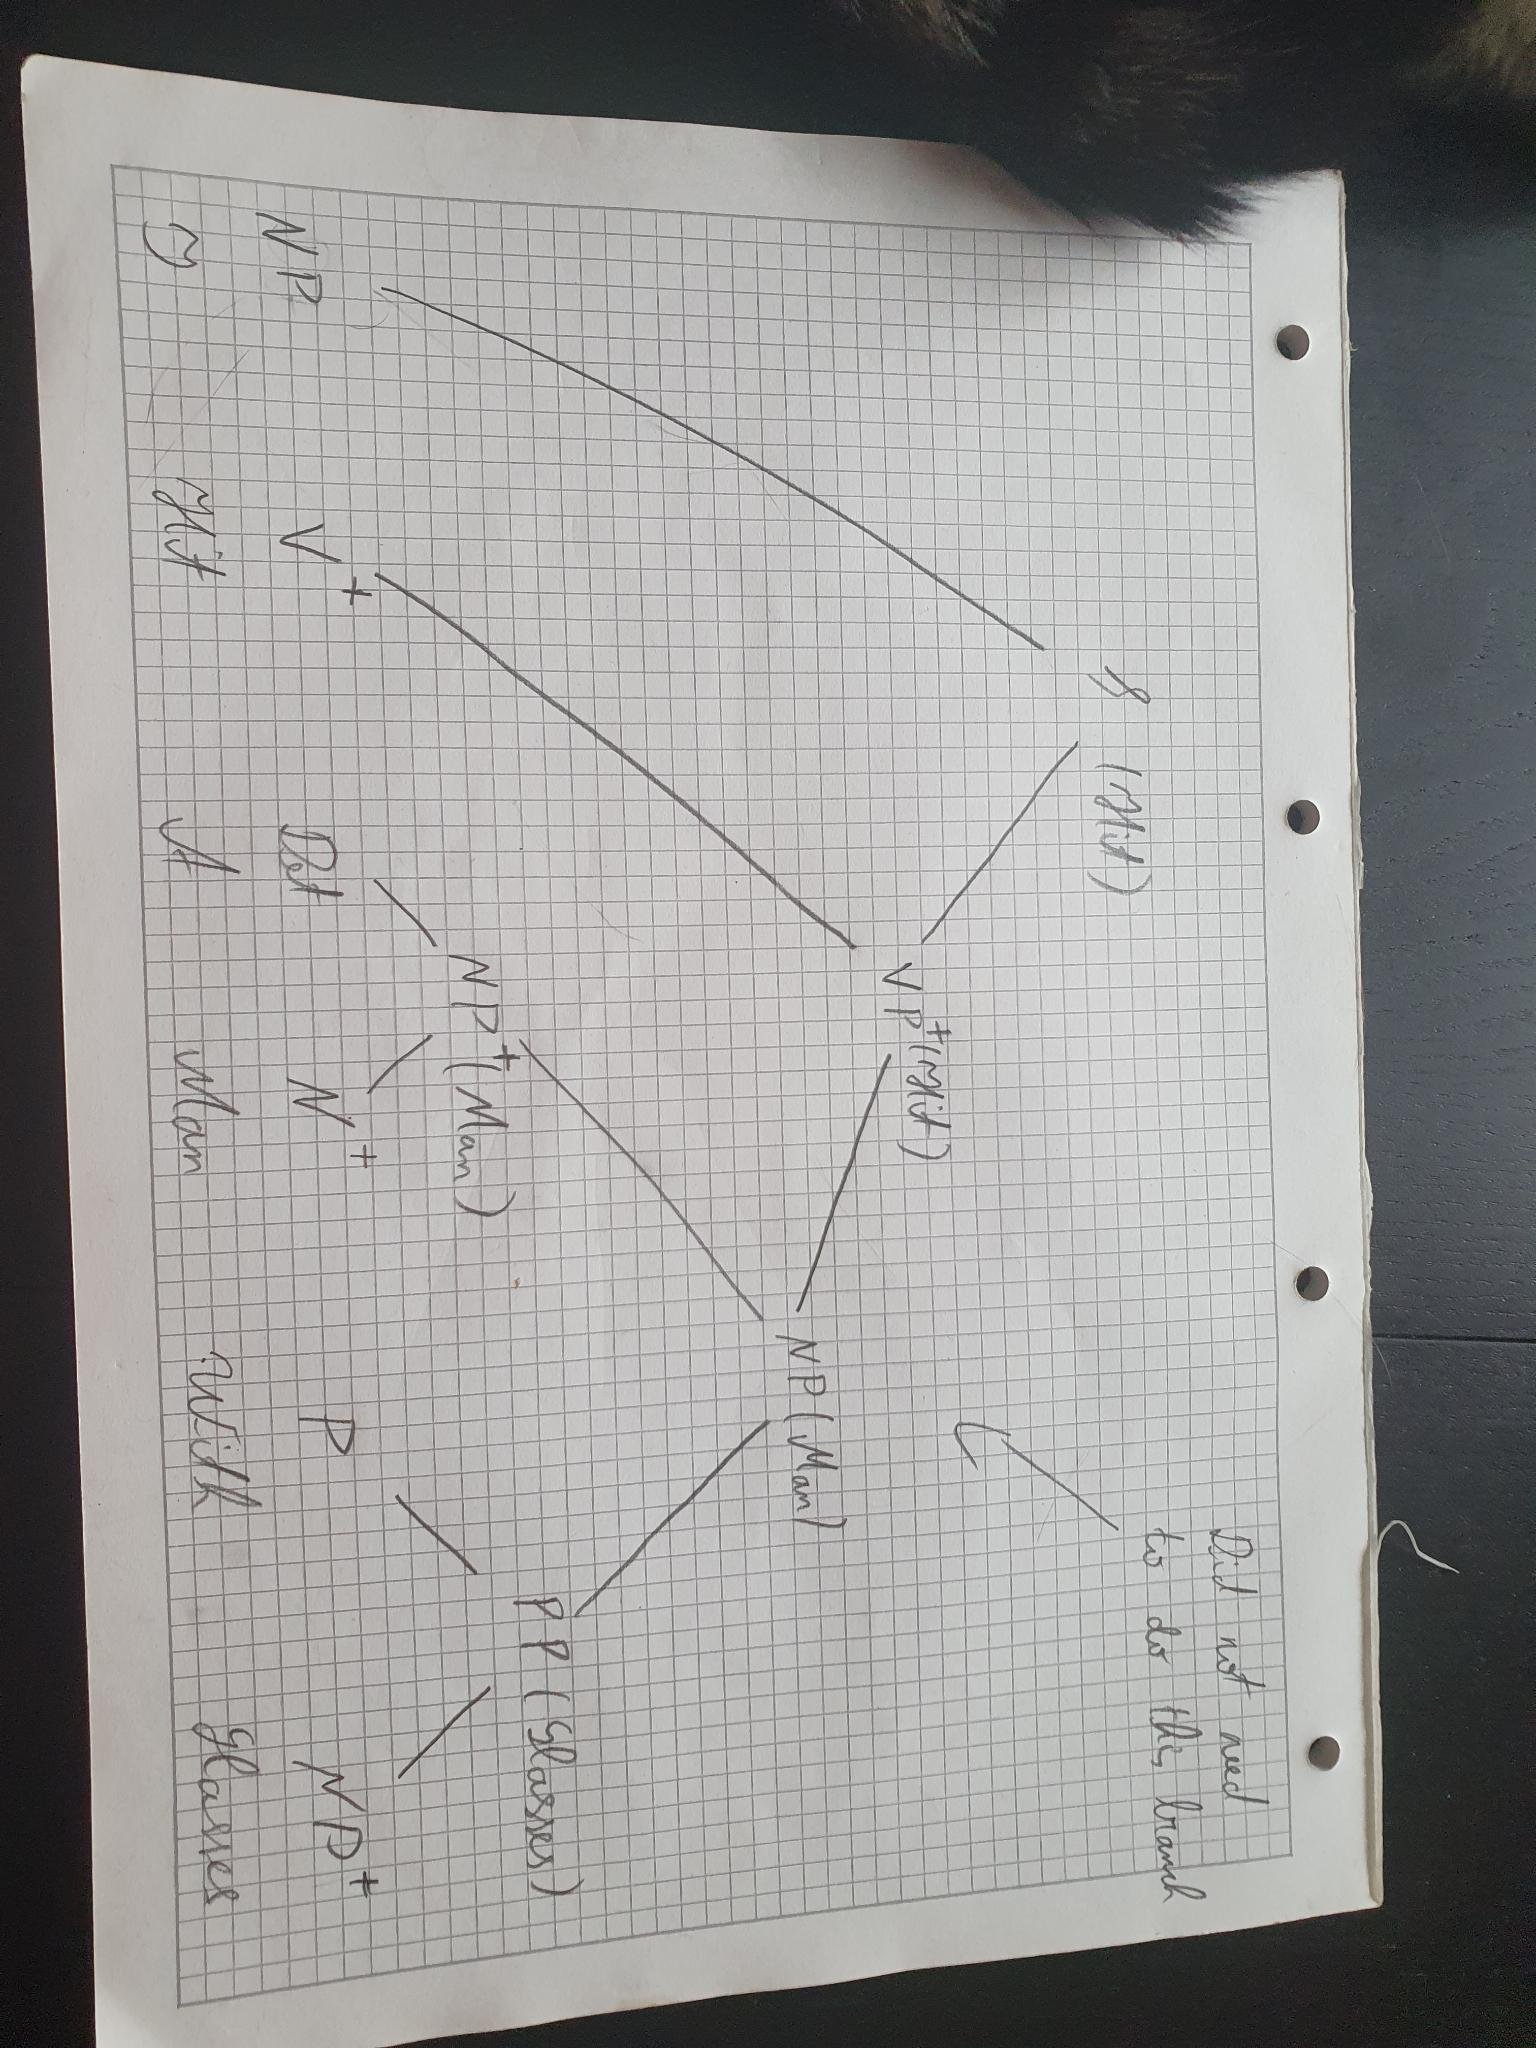 Did not need
to do this branch
S (Hit)
VP+ (Hit)
NP (Man)
PP (Glasses)
NP+ (Man)
NP V+ Det N+ P NP+
I Hit A Man With Glasses